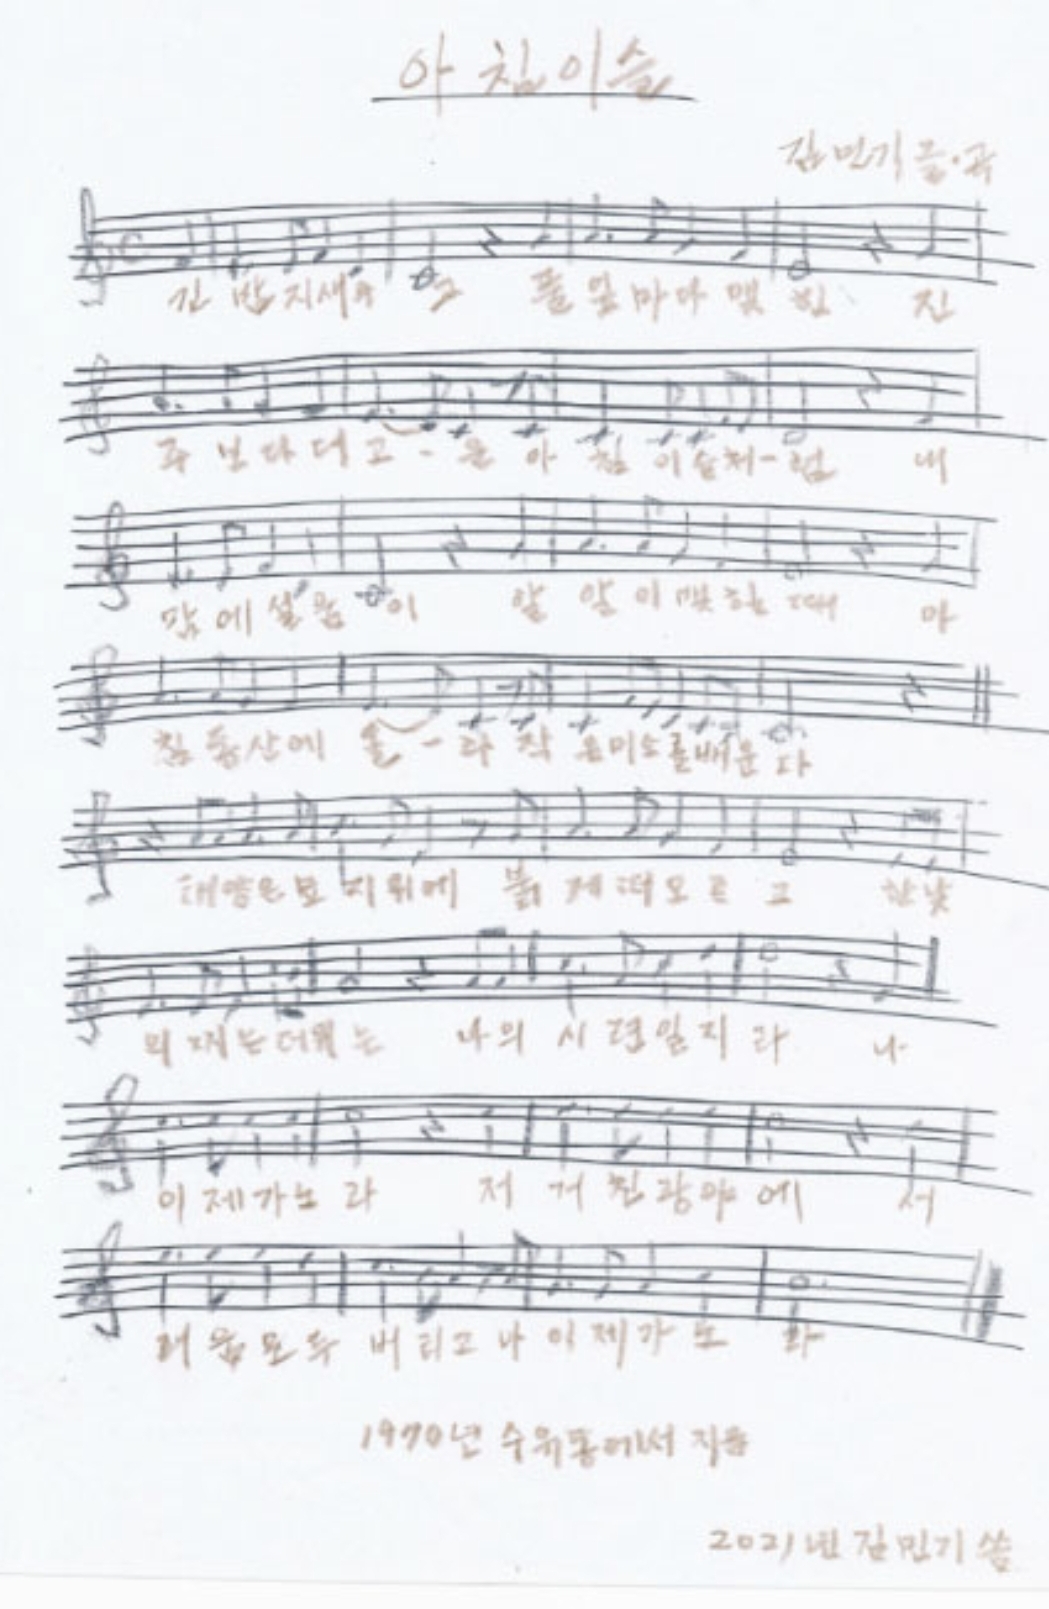 아침이슬
김민기 글·곡
긴 밤 지새우 고 풀 잎 마다 맺 힌 진
주 보 다 더 고 - 운 아 침 이슬처-럼 내
맘 에 설 움 이 알 알 이 맺 힐 때 아
침 동산에 올 - 라 작 은미소를배운 다
태양은 묘 지위에 붉 게 떠 오 르 고 한낮
의 찌는더위 는 나의 시 련 일 지 라 나
이 제 가 노 라 저 거 친 광 야 에 서
러 움 모 두 버 리고 나 이 제 가 노 라
1970년 수유동에서 지음
2021년 김민기 씀